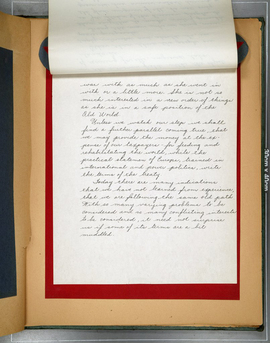 war with as much as she went in
with or a little more. She is not so
much interested in a new order of things
as she is in a safe position of the
Old World.
Unless we watch our step we shall
find a further parallel coming true, that
we may provide the money at the ex-
pense of our taxpayers for feeding and
rehabilitating the world, while the
practical statesmen of Europe, trained in
international and power politics, write
the terms of the treaty.
Today there are many indications
that we have not learned from experience,
that we are following the same old path.
With so many varying problems to be
considered and so many conflicting interests
to be considered it need not surprise
us if some of its terms are a bit
muddled.